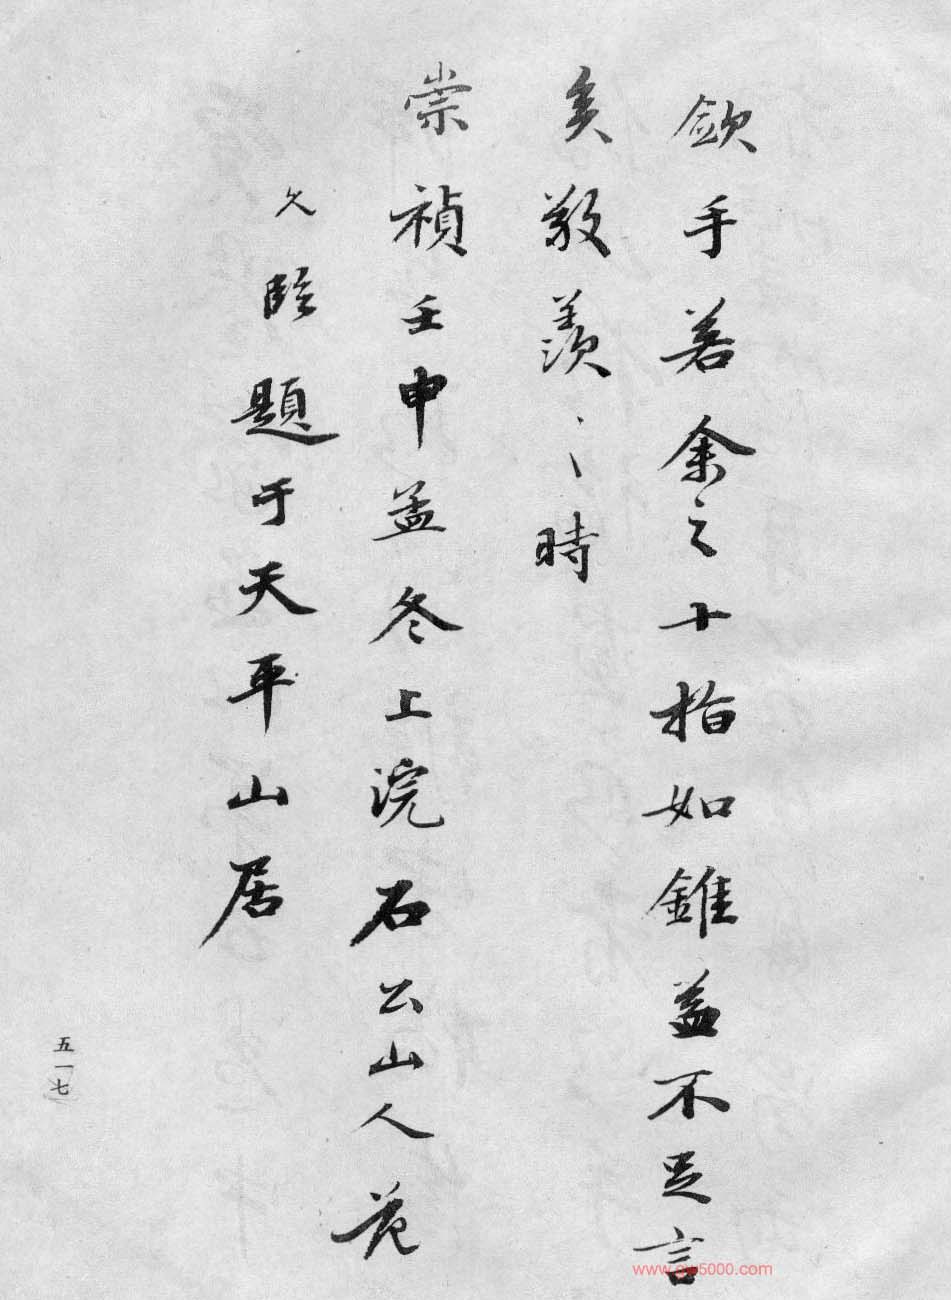 歛手若余之十指如錐益不足言
矣敬羨〻時
崇禎壬申孟冬上浣石公山人范
允臨題于天平山居
五一七
www.gw5000.com